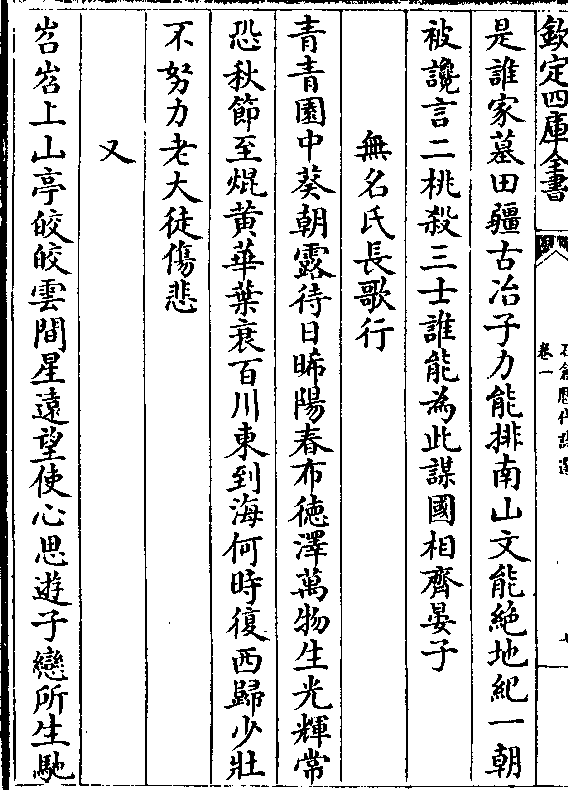 欽定四庫全書
石倉歴代詩選
卷一
七
是誰家墓田疆古冶子力能排南山文能絶地紀一朝
被讒言二桃殺三士誰能為此謀國相齊晏子
無名氏長歌行
青青園中葵朝露待日晞陽春布徳澤萬物生光輝常
恐秋節至焜黄華葉衰百川東到海何時復西歸少壯
不努力老大徒傷悲
又
岧岧上山亭皎皎雲間星遠望使心思遊子戀所生馳